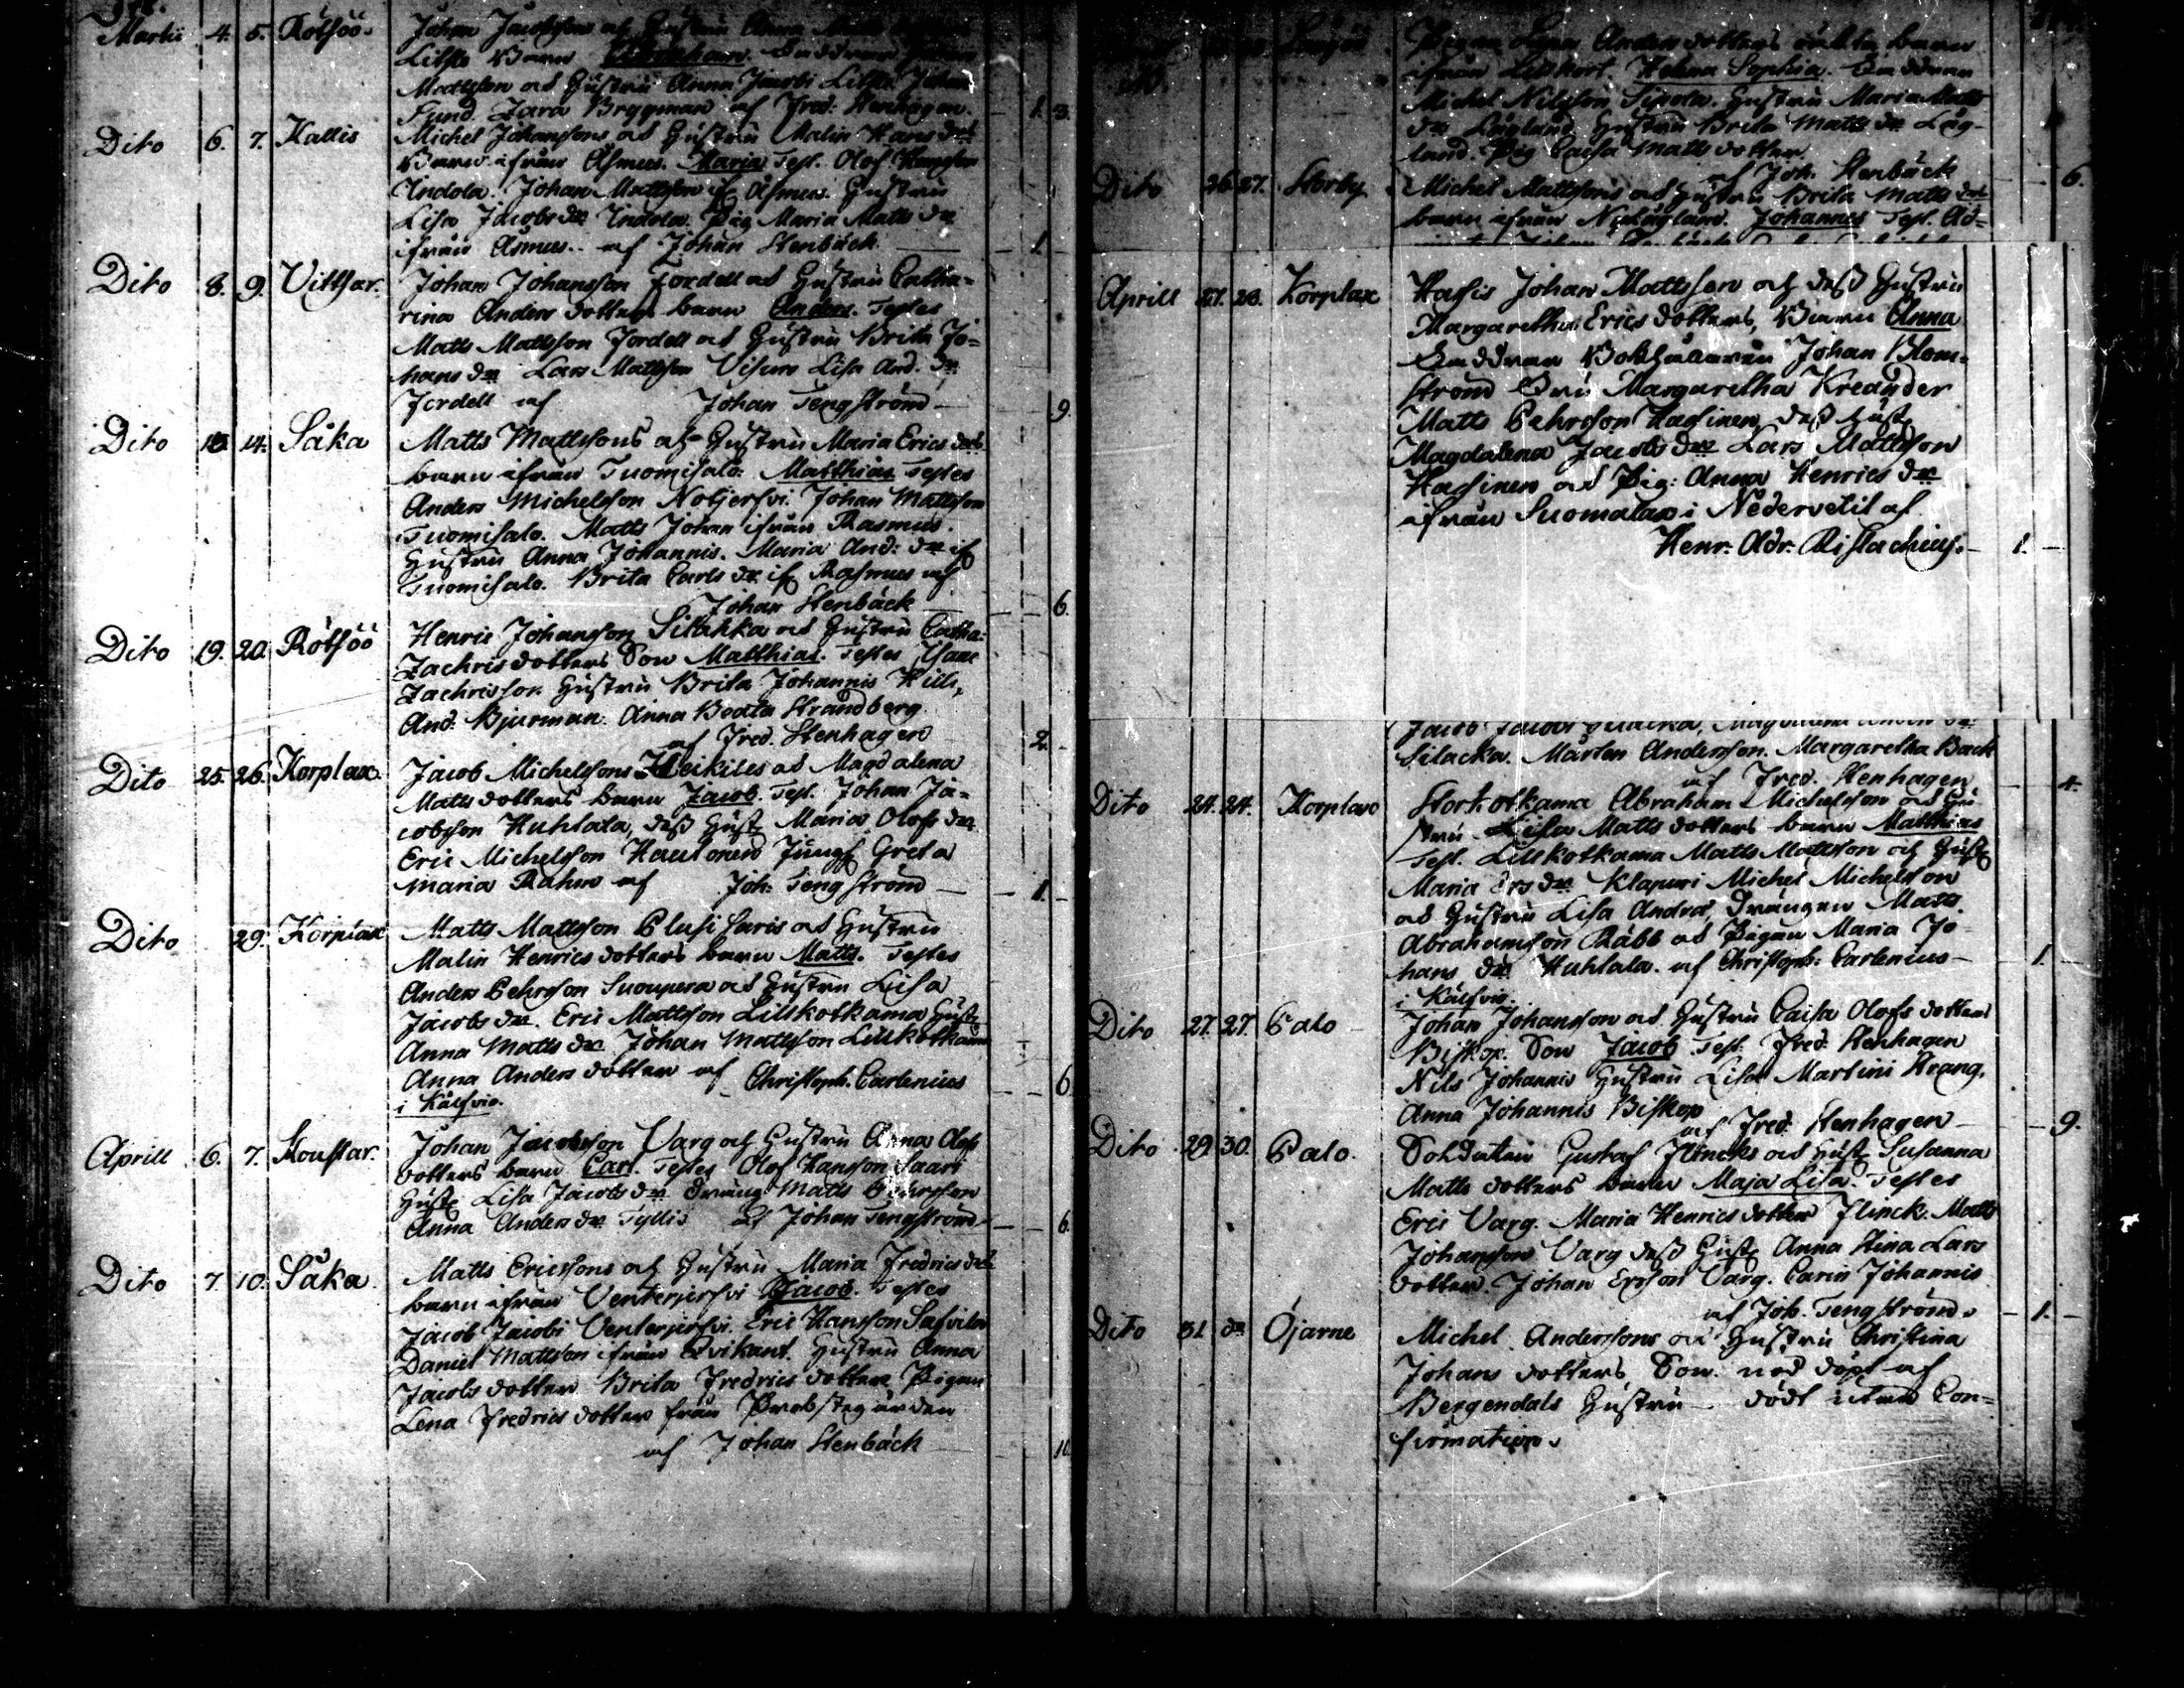 Martii 4. 5. Rötsöö. Johan Jacobsson och Hustru Anna
Lillsö Barn Faddrar
Mattsson och Hustru Anna Jacobi Lillsö Johan
Sund. Zara Bryggman af Fred. Stenhagen. 1. 3.
Dito 6. 7. Kallis Michel Johanssons och Hustru Malin Hans dotts
Barn ifrån Åsmus. Maria Test. Olof Hansson
Indola. Johan Mattsson if Åsmus. Hustru
Lisa Jacobs dr Indola. Pig. Maria Matts dr
ifrån Åsmus. af Johan Stenbäck 1.
Dito 8. 9. Vittsar. Johan Johansson Jordell och Hustru Catha=
rina Anders dotters barn Anders. Testes
Matts Mattsson Jordell och Hustru Brita Jo=
hans dr Lars Mattsson Visuri Lisa And. dr
Jordell af Johan Tengström 9.
Dito 13 14. Såka Matts Mattssons och Hustru Maria Erics dotts
barn ifrån Tuomisalo. Matthias Testes
Anders Michelsson Notjerfvi Johan Mattsson
Tuomisalo. Matts Johan ifrån Rasmus.
Hustru Anna Johannis. Maria And: dr if
Tuomisalo. Brita Carls dr if Rasmus af
Johan Stenbäck 6.
Dito 19. 20. Rötsöö Henric Johansson Silahka och Hustru Catha:
Zachris dotters Son Matthias. Testes Isaac
Zachrisson Hustru Brita Johannis
And. Bjurman. Anna Beata Strandberg.
af Fred. Stenhagen 2.
Dito 25. 26. Korplax. Jacob Michelssons Heikiles och Magdalena
Matts dotters barn Jacob. Test. Johan Ja=
cobsson Huhtala, dess Hust Maria Olofs dr
Eric Michelsson Hautonen Jungf Greta
Maria Rahm af Joh: Tengström 1.
Dito 29. Korplax Matts Mattsson Plusisaris och Hustru
Malin Henrics dotters barn Matts. Testes
Anders Pehrsson Suoupera och Hustru Lisa
Jacobs dr. Eric Mattsson Lillkotkama Hust
Anna Matts dr Johan Mattsson Lillkotkama
Anna Anders dotter af Christoph. Cartenius 6
i Kälfvio.
Aprill 6. 7. Koustar. Johan Jacobsson Varg och Hustru Anna Olofs
dotters barn Carl. Testes Olof Hansson Saari
Hust Lisa Jacobs dr Dräng Matts Pehrsson
Anna Anders dr Tyllis af Johan Tengström 6.
Dito 7. 10. Såka. Matts Ericssons och Hustru Maria Fredrics dotts
barn ifrån Venterjerfvi Jacob. Testes
Jacob Jacobi Venterjerfvi. Eric Hansson
Daniel Mattsson ifrån Qvikant. Hustru Anna
Jacobs dotter Brita Fredrics dotter Pigan
Lena Fredrics dotter från Probstegården
af Johan Stenbäck 10.
Pigan Lena Anders dotters oäkta barn
ifrån Lillkort. Helena Sophia. Faddrar
Michel Nilsson Sipola. Hustru Maria Matts
dr Lågland Hustru Brita Matts dr Låg-
land. Pig Caisa Matts dotter
af Joh. Stenbäck 6.
Dito 26. 27. Storby. Michel Mattssons och Hustru Brita Matts dotts
barn ifrån Johannes Test.
Aprill 27. 28. Korplax Hasis Johan Mattsson och dess Hustru
Margaretha Erics dotters, Barn Anna
Faddrar Bokhållaren Johan Blom-
ström Fru Margaretha Kreander
Matts Pehrsson Hasinen, dess Hust
Magdalena Jacobs dr Lars Mattsson
Hasinen och Pig: Anna Henrics dr
ifrån Suomalax i Nedervetil af
Henr: Adr. Ristachius. 1.
Silacka. Mårten Andersson. Margaretha Back
af Fred. Stenhagen 4.
Dito 24. 24. Korplax Storkotkama Abraham Michelsson och Hu
stru Lisa Matts dotters barn Matthias
Test. Lillkotkama Matts Mattsson och Hust
Maria Ers dr Klapuri Michel Michelsson
och Hustru Lisa Andræ, Drängen Matts
Abrahamsson Räbb och Pigan Maria Jo
hans dr Huhtala. af Christoph: Cartenius 1.
i Kälfvio.
Dito 27. 27. Palo Johan Johansson och Hustru Caisa Olofs dotters
Biskop. Son Jacob. Test. Fred. Stenhagen
Nils Johannis Hustru Lisa Martini Krang.
Anna Johannis Biskop
af Fred. Stenhagen 9.
Dito 29. 30. Palo. Soldaten Gustaf Flincks och Hust Susanna
Matts dotters barn Maja Lisa. Testes
Eric Varg. Maria Henrics dotter Flinck. Matts
Johansson Varg dess Hust Anna Stina Lars
dotter. Johan Ersson Varg. Carin Johannis
af Joh. Tengström. 1.
Dito 31 do Öjarne Michel Anderssons och Hustru Christina
Johans dotters Son. nöd döpt af
Bergendals Hustru — dödt utan Con=
firmation.